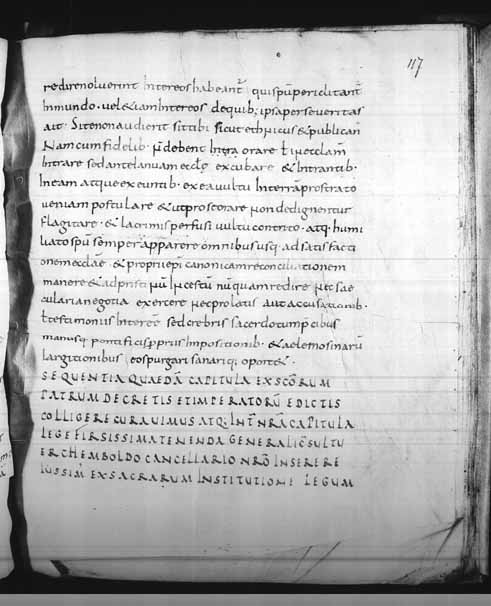 117
redire noluerint Inter eos habeant̄ qui spū periclitant̄
In mundo · vel etiam Inter eos de quib; ipsa per se veritas
ait · Si te non audierit sit tibi sicut ethnicus & publican̄
Nam cum fidelib· n̄ debent Intra orare ł in ecclam̄
Intrare sed ante Ianuam eccle excubare & Intrantib·
In eam atque exeuntib· ex ea vultu In terrā prostrato
veniam postulare & ut pro se orare non dedignentur
flagitare · & lacrimis perfusi vultu contrito · atq· humi
liato spū semper apparere omnibus usq· ad satisfacti
onem eccłae · & proprii epī canonicam reconciliationem
manere & ad pristinū
licestū nūquam redire nec sae
cularia negotia exercere nec prolatis aut accusationib·
ł testimoniis Interee sed crebris sacerdotum p̄cibus
manusq· pontificis p̄priis Impositionib· & aelemosinarū
largitionibus eos purgari sanariq· oporte& ·
SEQUENTIA QUAEDĀ CAPITULA EX SCŌRUM
PATRUM DECRETIS ET IMPERATORŪ EDICTIS
COLLIGERE CURAVIMUS ATQ· INT̄ NR̄A CAPITULA
LEGE FIRSISSIMA TENENDA GENERALI CŌSULTU
ERCHEMBOLDO CANCELLARIO NRŌ INSERERE
IUSSIM̄ EX SACRARUM INSTITUTIONE LEGUM